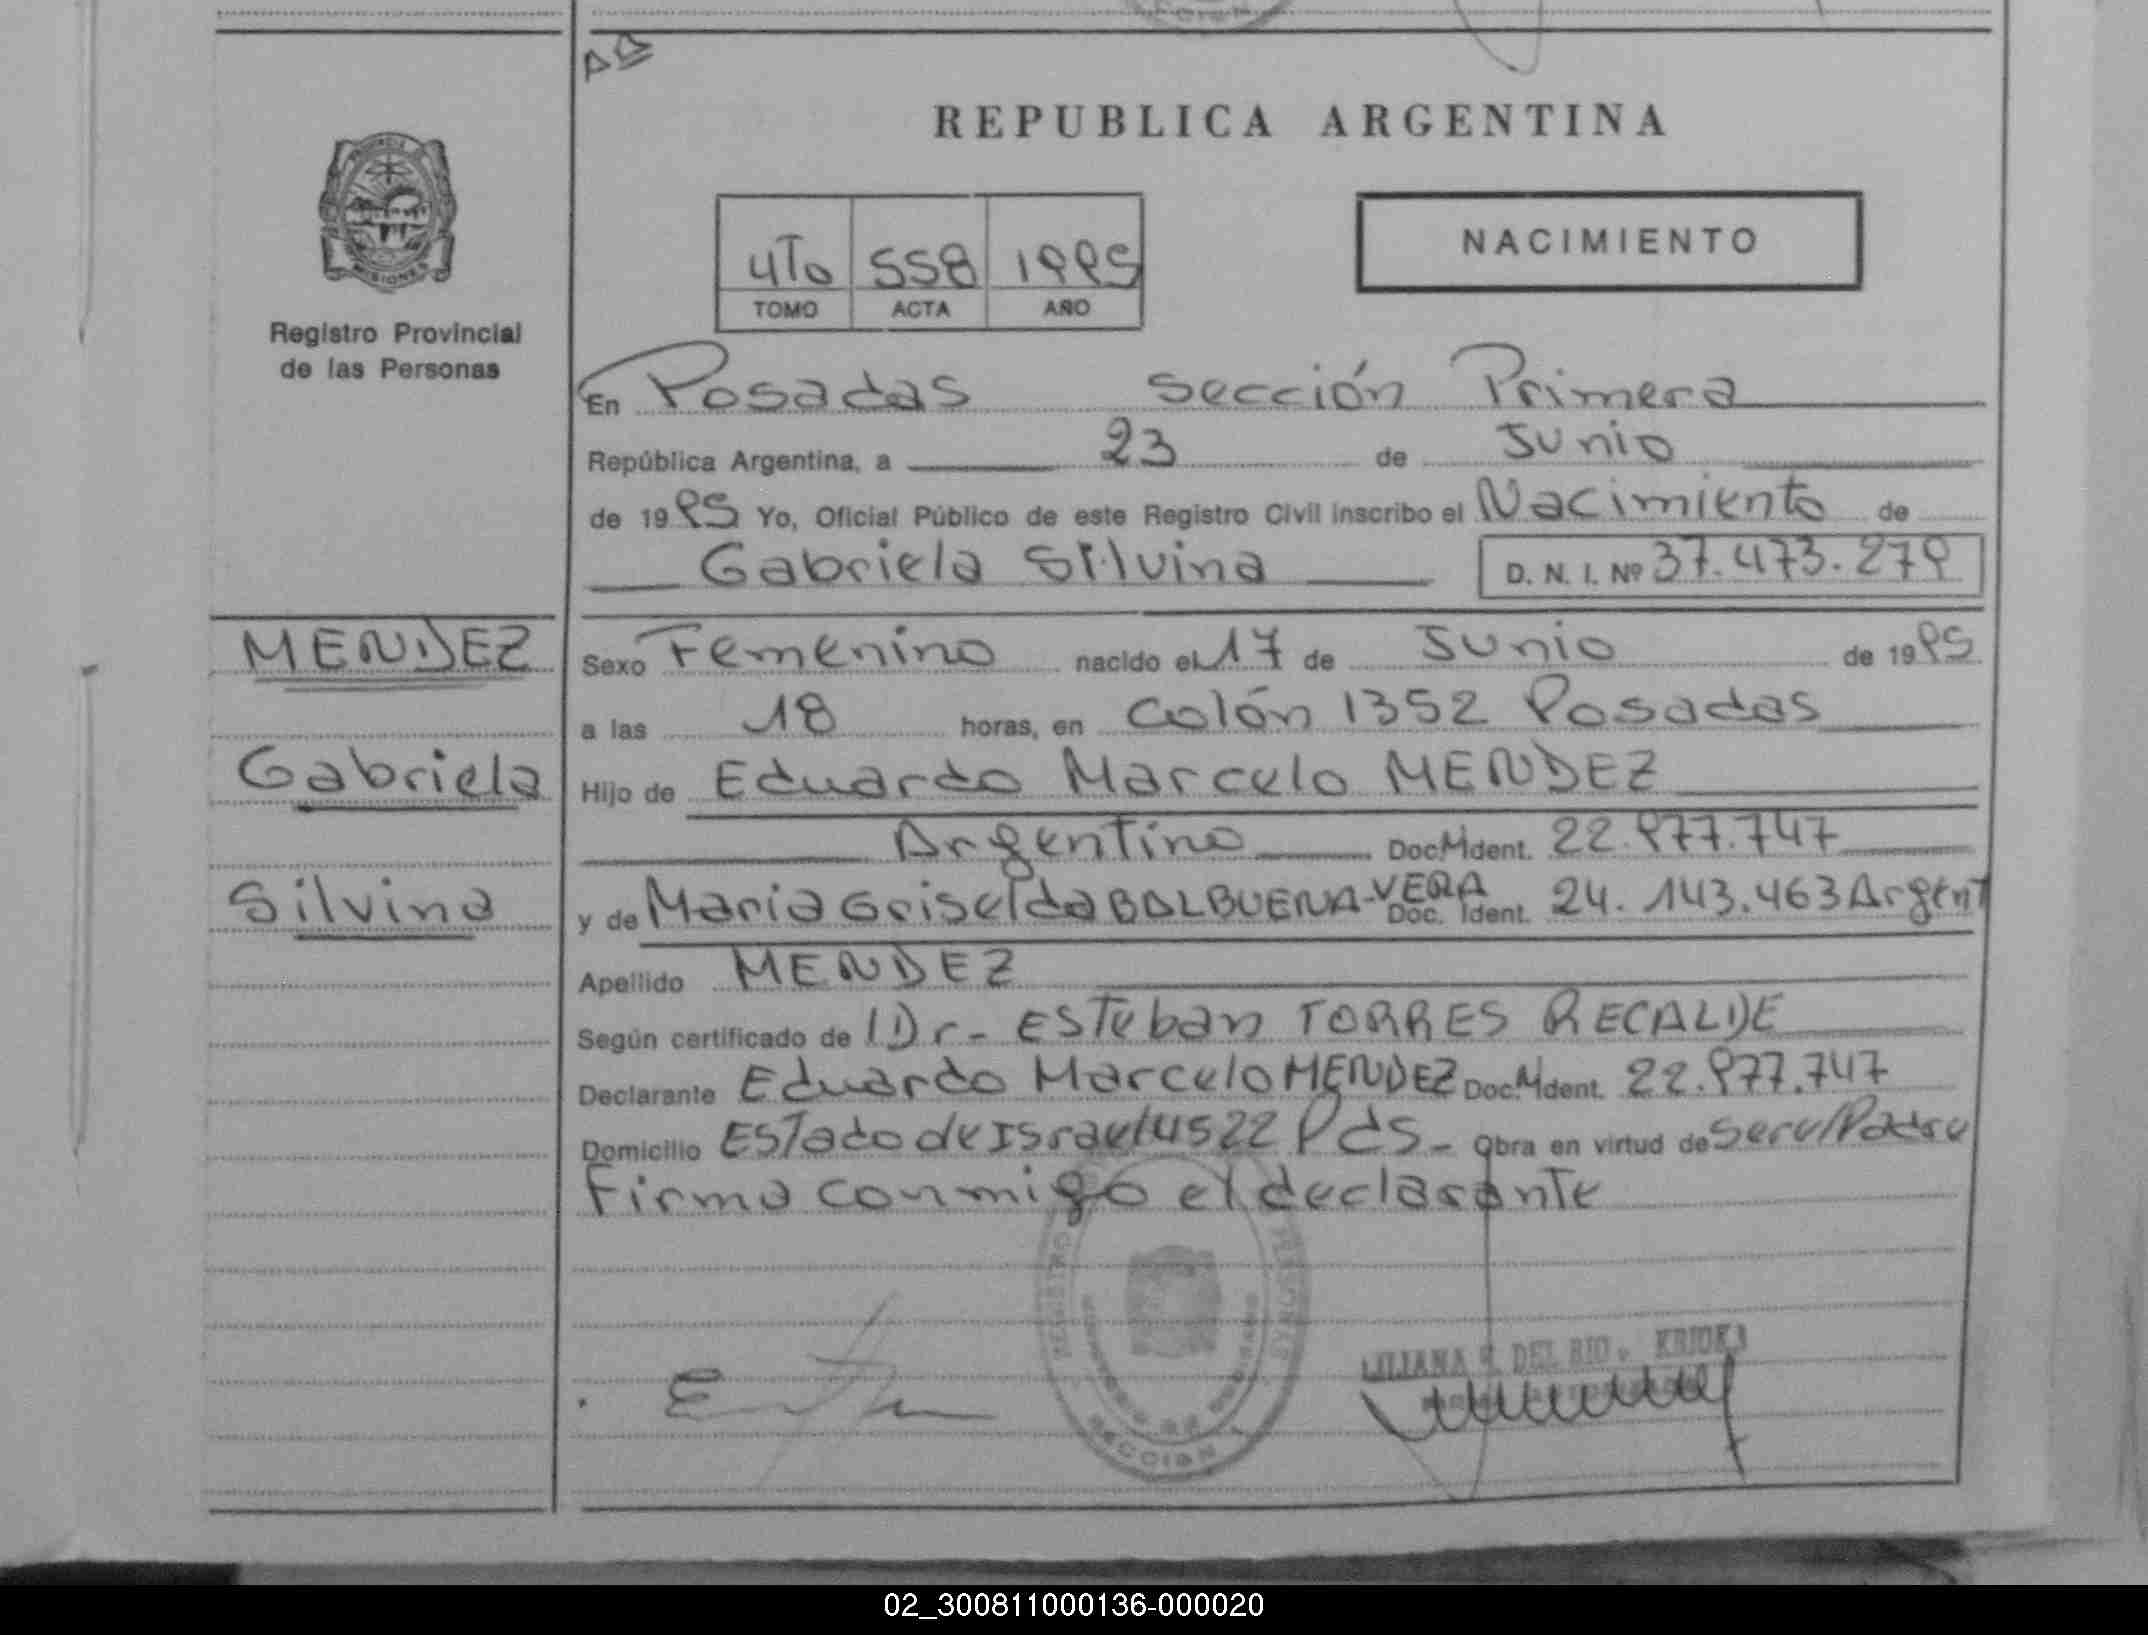 REPUBLICA ARGENTINA
4To 558 1995
TOMO ACTA AÑO
NACIMIENTO
Registro Provincial
de las Personas
En Posadas sección Primera
República Argentina, a 23 de Junio
de 1995 Yo, Oficial Público de este Registro Civil inscribo el Nacimiento de
Gabriela Silvina D. N. I. Nº 37.473.279
MENDEZ
Gabriela
Silvina
Sexo Femenino nacido el 17 de Junio de 1995
a las 18 horas, en Colón 1352 Posadas
Hijo de Eduardo Marcelo MENDEZ
Argentino Doc. Ident. 22.977.747
y de Maria Griselda BALBUENA-VERA Doc. Ident. 24.143.463 Argent
Apellido MENDEZ
Según certificado de Dr- Esteban TORRES RECALDE
Declarante Eduardo Marcelo MENDEZ Doc. Ident. 22.977.747
Domicilio Estado de Israel 4522 Pds- Obra en virtud de Padre
Firma conmigo el declarante
LILIANA DEL RIO
SECCION 1
02_300811000136-000020